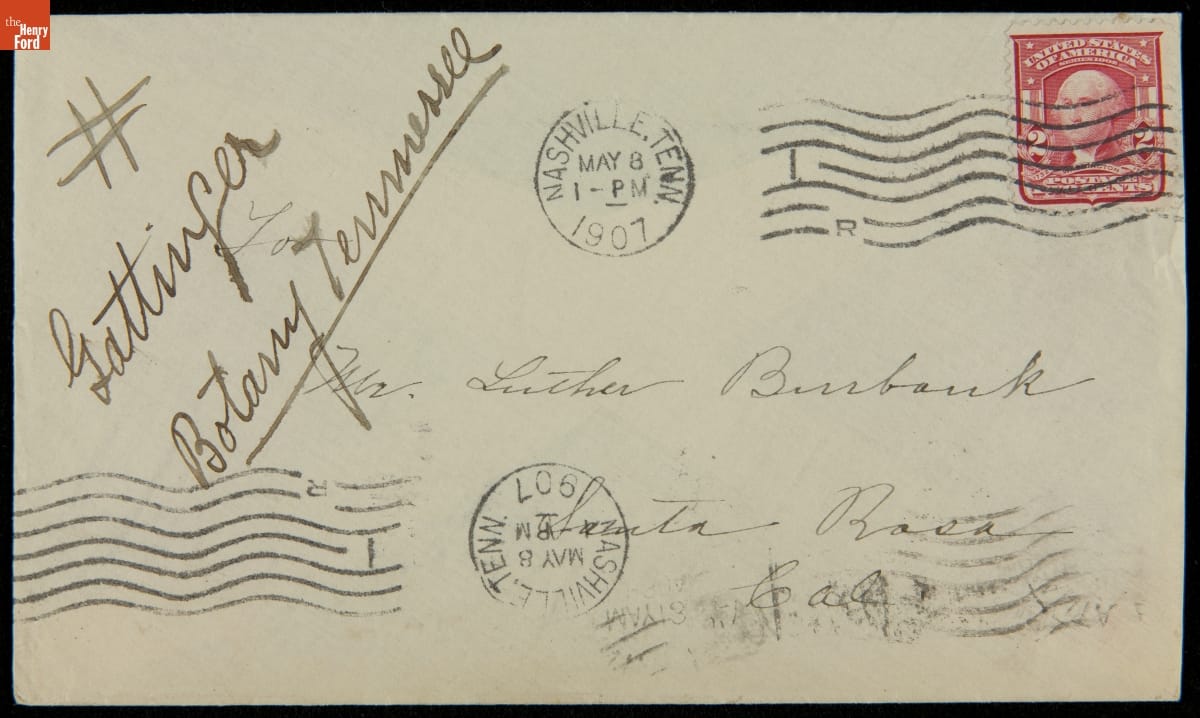 the
Henry
Ford
#
Gattinger
Botany Tennessee
To
NASHVILLE, TENN.
MAY 8
1 - PM
1907
I
R
UNITED STATES
OF AMERICA
SERIES 1902
2 2
POSTAGE
TWO CENTS
Mr. Luther Burbank
Santa Rosa
Cal
NASHVILLE, TENN.
MAY 8
PM
1907
I
R